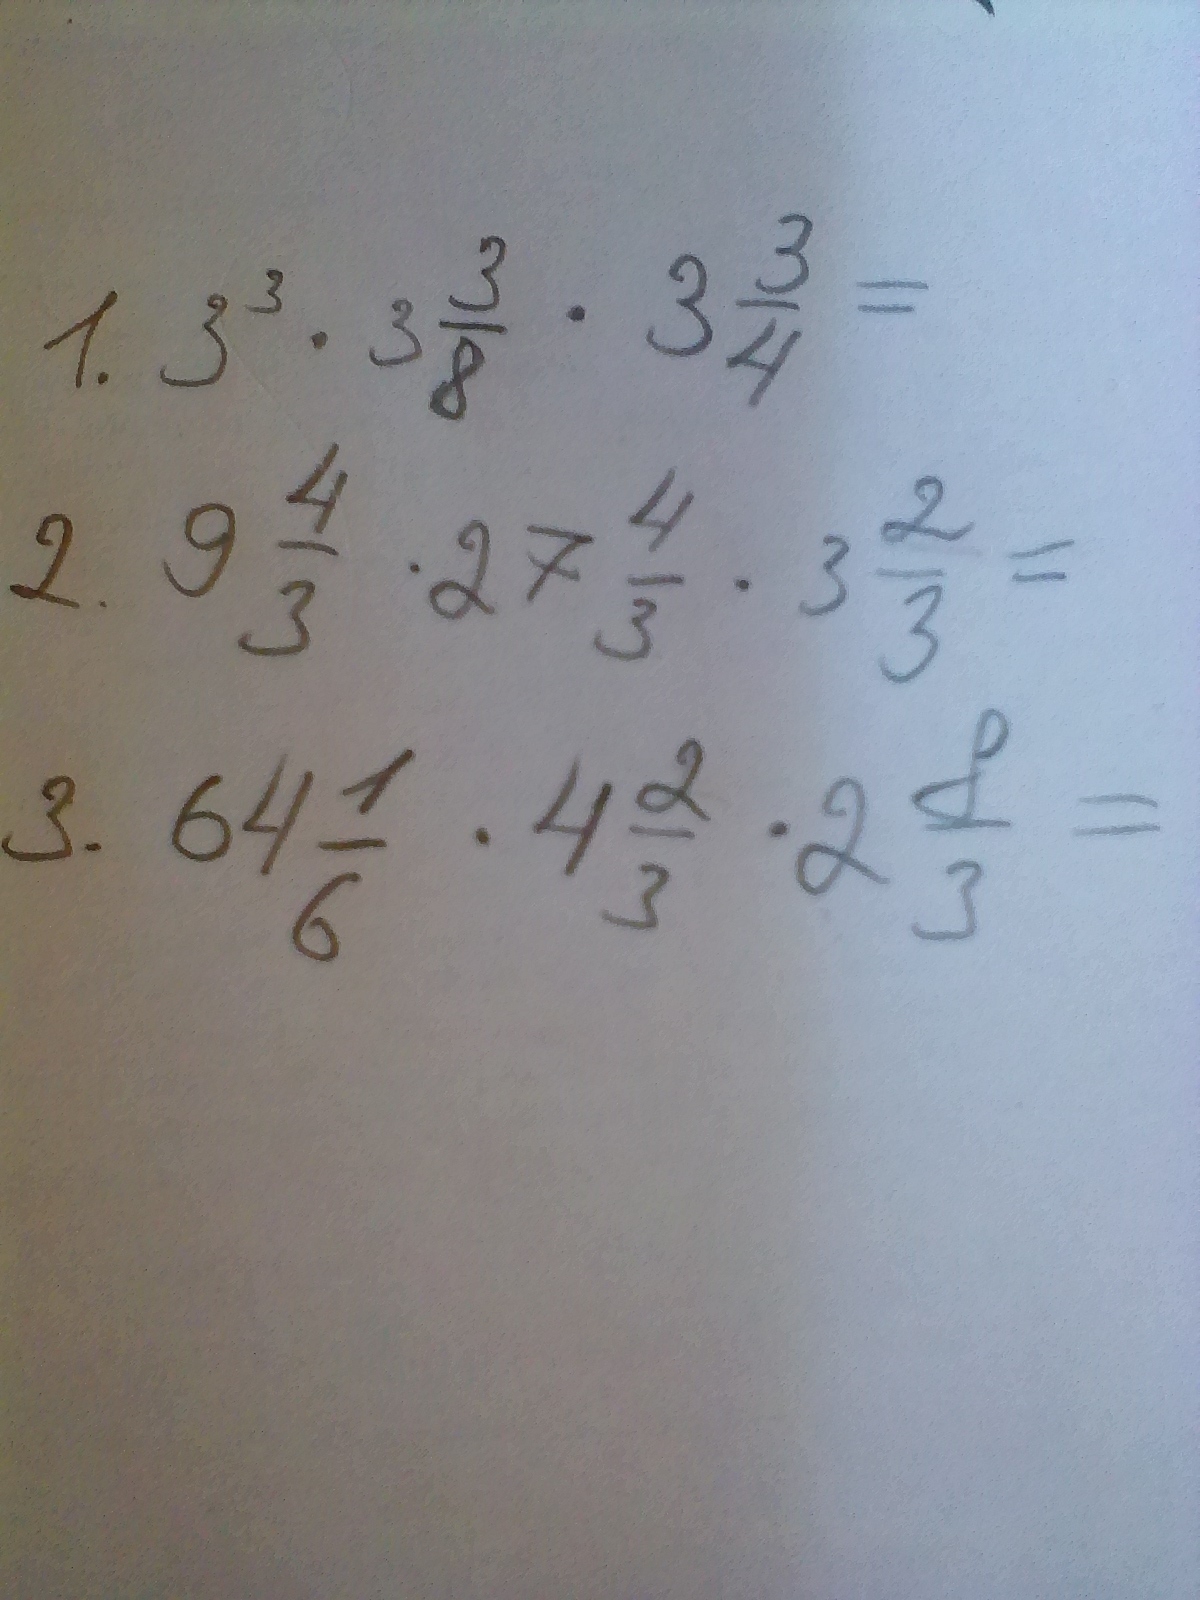 1. 3³ · 3 3/8 · 3 3/4 =
2. 9 4/3 · 27 4/3 · 3 2/3 =
3. 64 1/6 · 4 2/3 · 2 /3 =